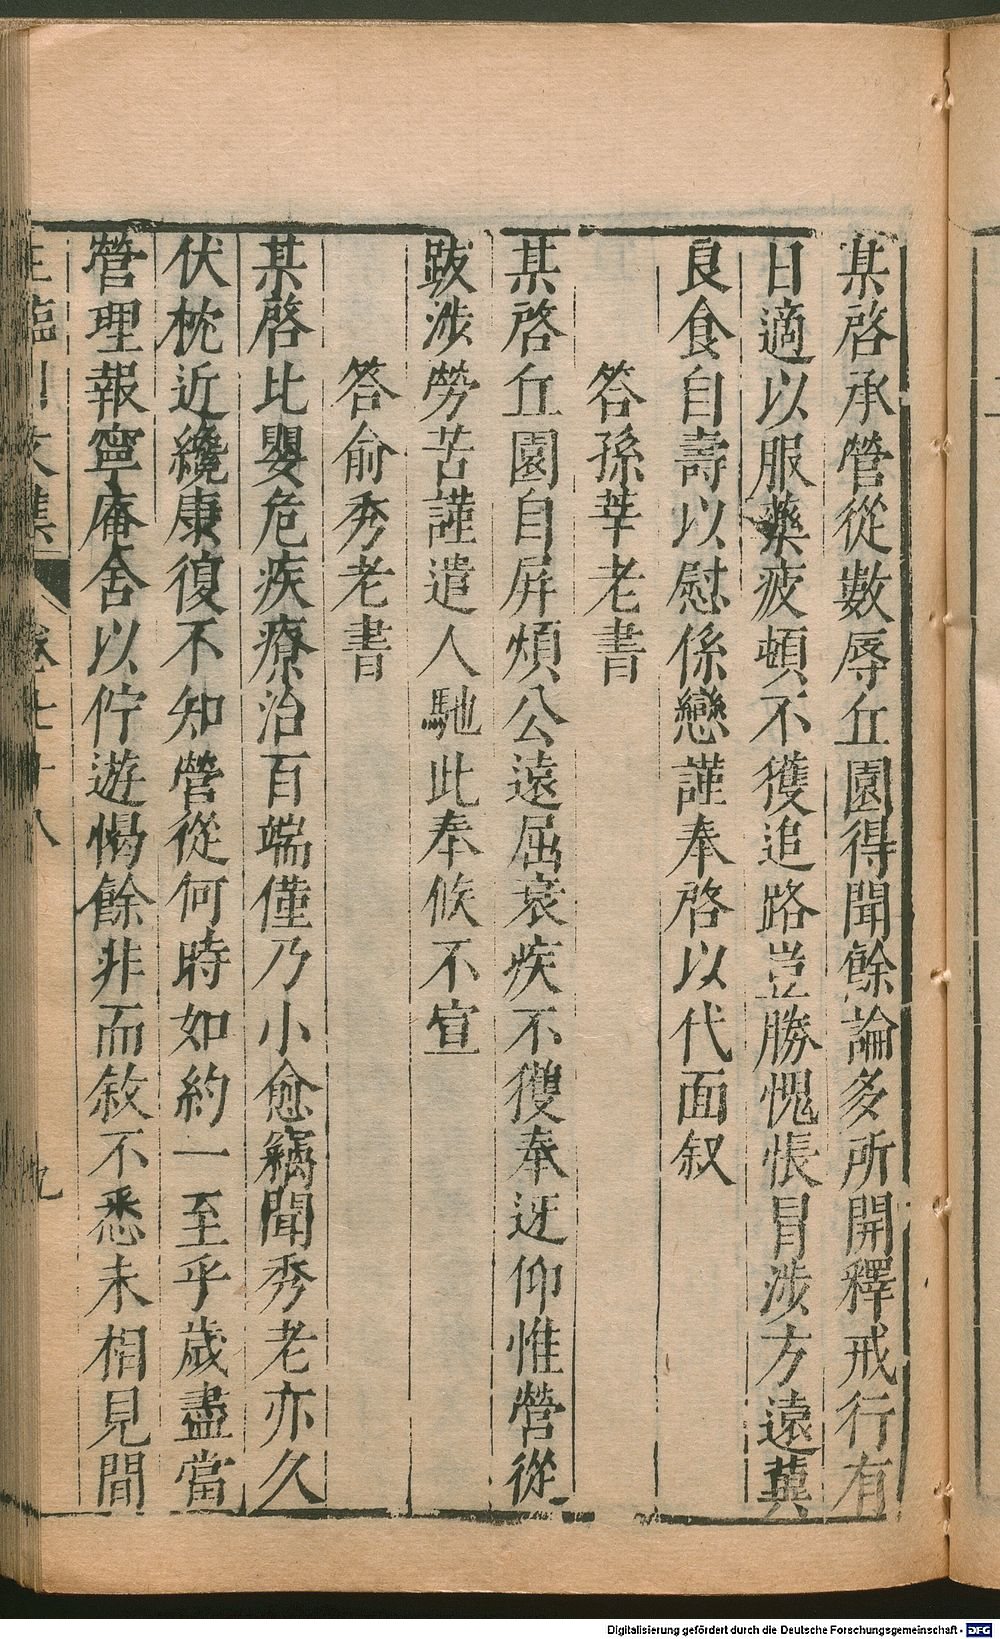 某啓承營從數辱丘園得聞餘論多所開釋戒行有
日適以服藥疲頓不獲追路豈勝愧悵冒涉方遠冀
良食自壽以慰係戀謹奉啓以代面叙
答孫莘老書
某啓丘園自屏煩公遠屈衰疾不獲奉迓仰惟營從
跋涉勞苦謹遣人馳此奉候不宣
答俞秀老書
某啓比嬰危疾療治百端僅乃小愈竊聞秀老亦久
伏枕近纔康復不知營從何時如約一至乎歲盡當
營理報寧庵舍以佇遊愒餘非面敘不悉未相見間
王臨川文集 卷七十八 九
Digitalisierung gefördert durch die Deutsche Forschungsgemeinschaft - DFG